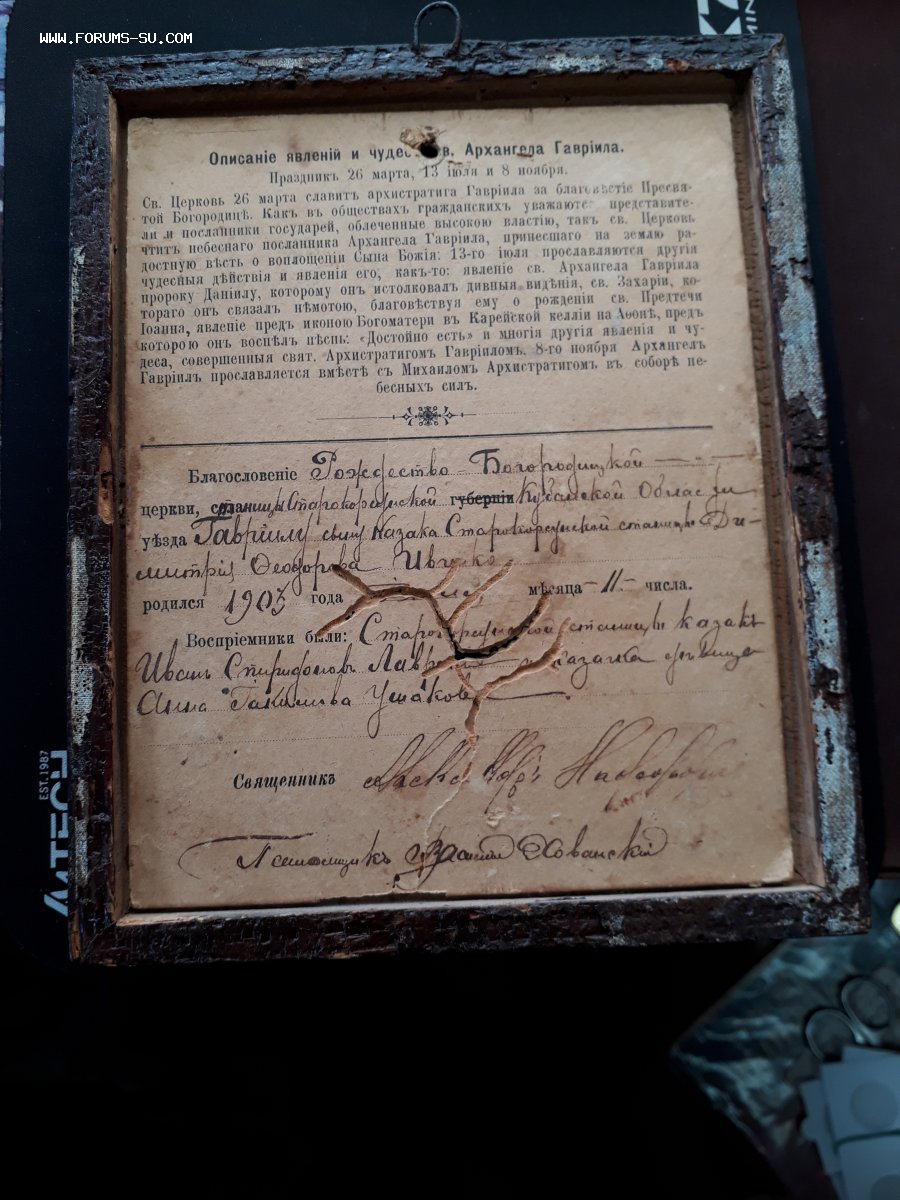 WWW.FORUMS-SU.COM
EST.1987
Описаніе явленій и чудесъ св. Архангела Гавріила.
Праздникъ 26 марта, 13 іюля и 8 ноября.
Св. Церковь 26 марта славитъ архистратига Гавріила за благовѣстіе Пресвя-
той Богородицѣ. Какъ въ обществахъ гражданскихъ уважаются представите-
ли и посланники государей, облеченные высокою властію, такъ св. Церковь
чтитъ небеснаго посланника Архангела Гавріила, принесшаго на землю ра-
достную вѣсть о воплощеніи Сына Божія: 13-го іюля прославляются другія
чудесныя дѣйствія и явленія его, какъ-то: явленіе св. Архангела Гавріила
пророку Даніилу, которому онъ истолковалъ дивныя видѣнія, св. Захаріи, ко-
тораго онъ связалъ нѣмотою, благовѣствуя ему о рожденіи св. Предтечи
Іоанна, явленіе предъ иконою Богоматери въ Карейской келліи на Аѳонѣ, предъ
которою онъ воспѣлъ пѣснь: «Достойно есть» и многія другія явленія и чу-
деса, совершенныя свят. Архистратигомъ Гавріиломъ. 8-го ноября Архангелъ
Гавріилъ прославляется вмѣстѣ съ Михаиломъ Архистратигомъ въ соборѣ не-
бесныхъ силъ.
Благословеніе Рождество-Богородицкой
церкви, станицы Старокорсунской губерніи Кубанской Области
уѣзда Гавріилу сыну Казака Старокорсунской станицы Ди-
митрія Ѳеодорова
родился 1903 года мѣсяца 11 числа.
Воспріемники были: Старокорсунской станицы казакъ
Иванъ Спиридоновъ казачка дѣвица
Анна Ушакова
Священникъ
Псаломщикъ Хованскій